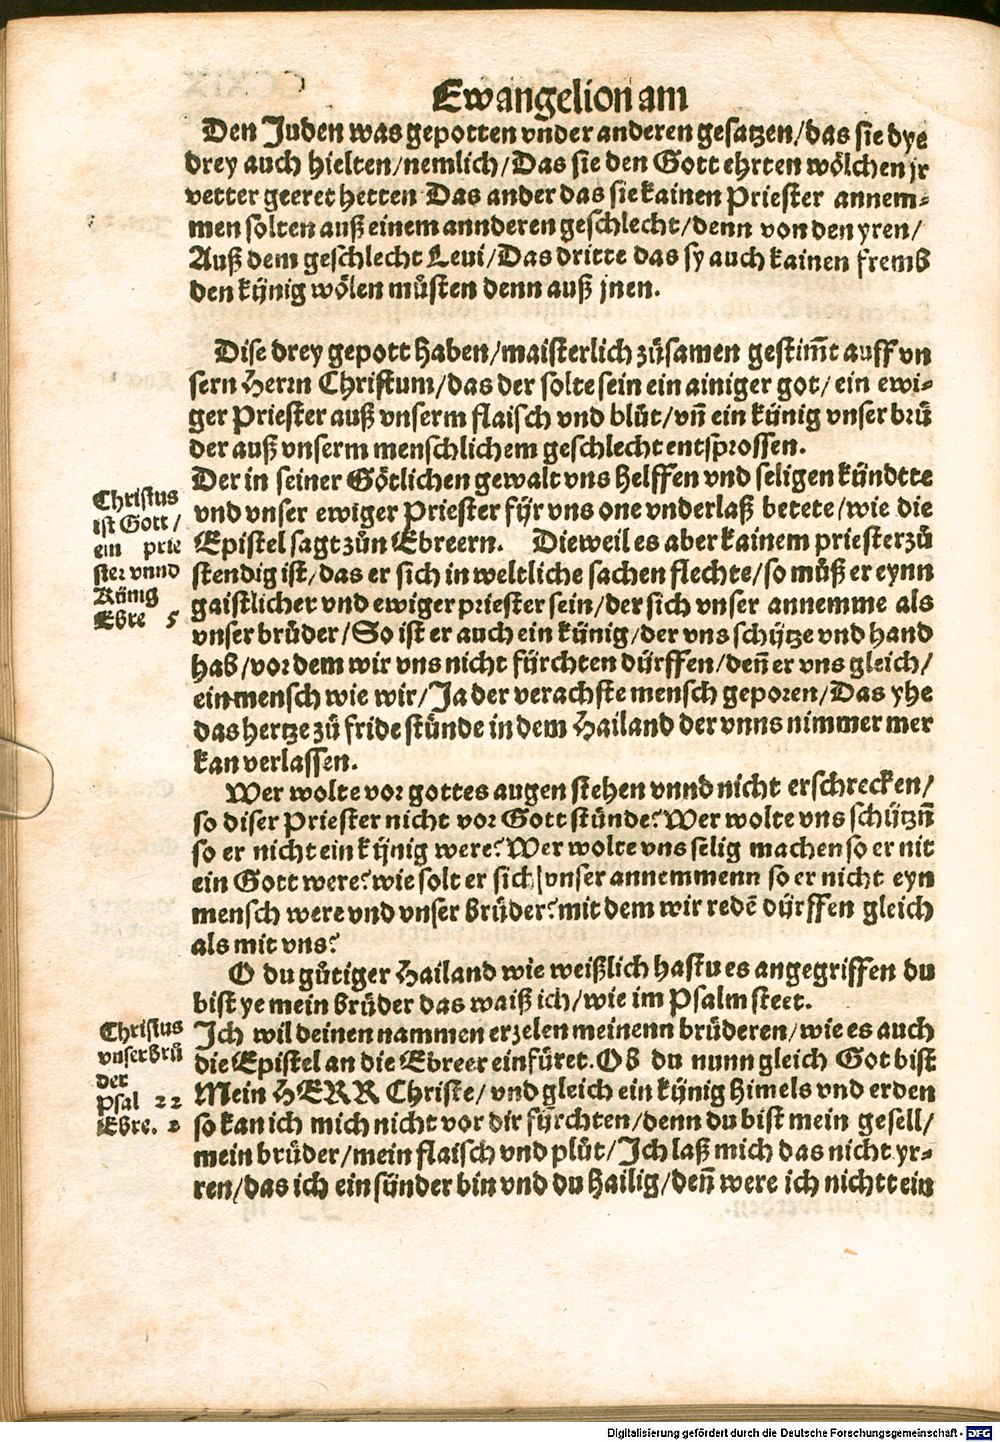 Ewangelion am
Den Juden was gepotten vnder anderen gesatzen/das sie dye
drey auch hielten/nemlich/Das sie den Gott ehrten wölchen jr
vetter geeret hetten Das ander das sie kainen Priester annem⸗
men solten auß einem annderen geschlecht/denn von den yren/
Auß dem geschlecht Leui/Das dritte das sy auch kainen fremb
den kynig wölen můsten denn auß jnen.
Dise drey gepott haben/maisterlich zůsamen gestim̃t auff vn
sern Herrn Christum/das der solte sein ein ainiger got/ein ewi⸗
ger Priester auß vnserm flaisch vnd blůt/vn̄ ein künig vnser brů
der auß vnserm menschlichem geschlecht entsprossen.
Der in seiner Götlichen gewalt vns helffen vnd seligen kündtte
vnd vnser ewiger Priester fÿr vns one vnderlaß betete/wie die
Epistel sagt zůn Ebreern. Dieweil es aber kainem priester zů
stendig ist/das er sich in weltliche sachen flechte/so můß er eynn
gaistlicher vnd ewiger priester sein/der sich vnser annemme als
vnser brůder/So ist er auch ein künig/der vns schÿtze vnd hand
hab/vor dem wir vns nicht fÿrchten dürffen/den̄ er vns gleich/
ein mensch wie wir/Ja der verachste mensch geporen/Das yhe
das hertze zů fride stünde in dem Hailand der vnns nimmer mer
kan verlassen.
Christus
ist Gott/
ein prie
ster vnnd
König
Ebre 5
Wer wolte vor gottes augen stehen vnnd nicht erschrecken/
so diser Priester nicht vor Gott stünde? Wer wolte vns schützn̄
so er nicht ein kÿnig were? Wer wolte vns selig machen so er nit
ein Gott were? wie solt er sich vnser annemmenn so er nicht eyn
mensch were vnd vnser Brůder? mit dem wir redē dürffen gleich
als mit vns?
O du gůtiger Hailand wie weißlich hastu es angegriffen du
bist ye mein Brůder das waiß ich/wie im Psalm steet.
Ich wil deinen nammen erzelen meinenn brůderen/wie es auch
die Epistel an die Ebreer einfüret. Ob du nunn gleich Got bist
Mein HERR Christe/vnd gleich ein kÿnig himels vnd erden
so kan ich mich nicht vor dir fÿrchten/denn du bist mein gesell/
mein brůder/mein flaisch vnd plůt/Ich laß mich das nicht yr⸗
ren/das ich ein sünder bin vnd du hailig/den̄ were ich nichtt ein
Christus
vnser brů
der
Psal 22
Ebre. 2
Digitalisierung gefördert durch die Deutsche Forschungsgemeinschaft - DFG